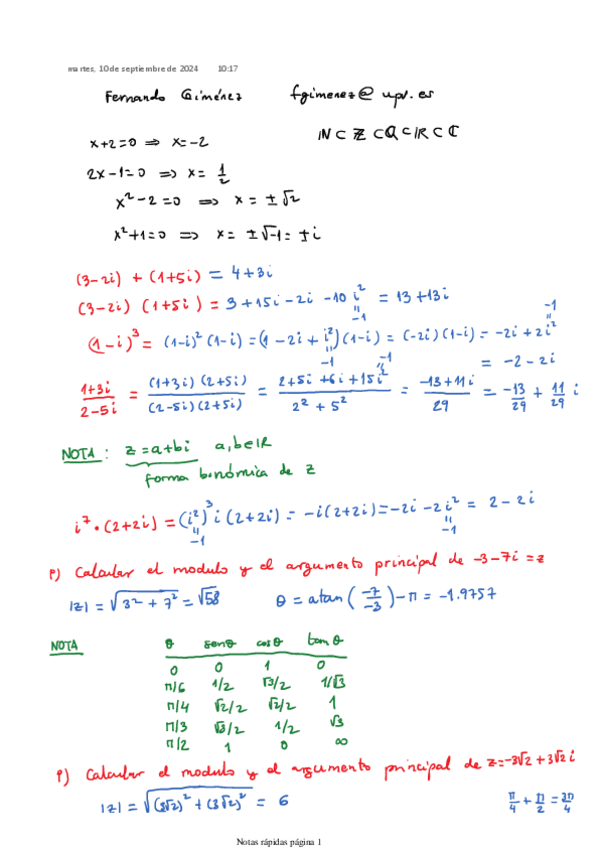 martes, 10 de septiembre de 2024 10:17
Fernando Giménez fgimenez@upv.es
ℕ ⊂ ℤ ⊂ ℚ ⊂ ℝ ⊂ ℂ
x+2=0 ⇒ x=-2
2x-1=0 ⇒ x= 1/2
x²-2=0 ⇒ x = ±√2
x²+1=0 ⇒ x = ±√-1 = ±i
(3-2i) + (1+5i) = 4+3i
(3-2i) (1+5i) = 3+15i-2i-10i² = 13+13i
-1 -1
(1-i)³ = (1-i)²(1-i) = (1-2i+i²)(1-i) = (-2i)(1-i) = -2i+2i²
-1 -1 = -2-2i
(1+3i)/(2-5i) = ((1+3i)(2+5i))/((2-5i)(2+5i)) = (2+5i+6i+15i²)/(2²+5²) = (-13+11i)/29 = -13/29 + 11/29 i
NOTA: z=a+bi a,b∈ℝ
forma binómica de z
i⁷·(2+2i) = (i²)³i(2+2i) = -i(2+2i) = -2i-2i² = 2-2i
-1 -1
P) Calcular el modulo y el argumento principal de -3-7i=z
|z| = √(3²+7²) = √58 θ = atan(-7/-3)-π = -1.9757
NOTA θ senθ cosθ tanθ
0 0 1 0
π/6 1/2 √3/2 1/√3
π/4 √2/2 √2/2 1
π/3 √3/2 1/2 √3
π/2 1 0 ∞
P) Calcular el modulo y el argumento principal de z=-3√2+3√2i
|z| = √((3√2)²+(3√2)²) = 6 π/4 + π/2 = 3π/4
Notas rápidas página 1